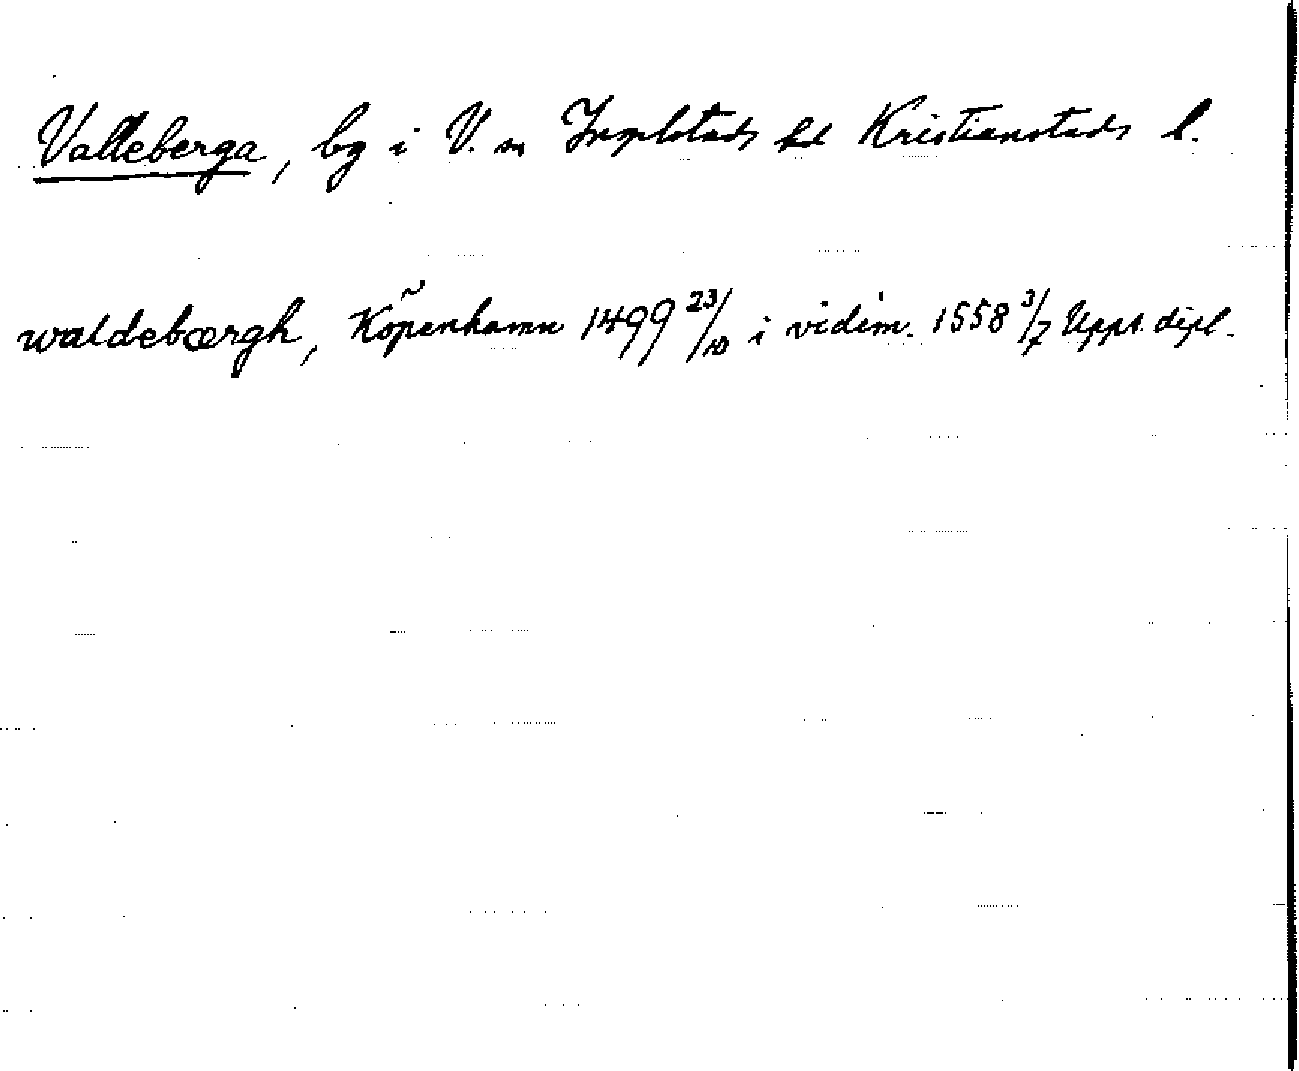 Valleberga, by i V. sn Ingelstads hd Kristianstads l.
waldebærgh, Köpenhamn 1499 23/10 i vidim. 1558 3/7 Upps. dipl.